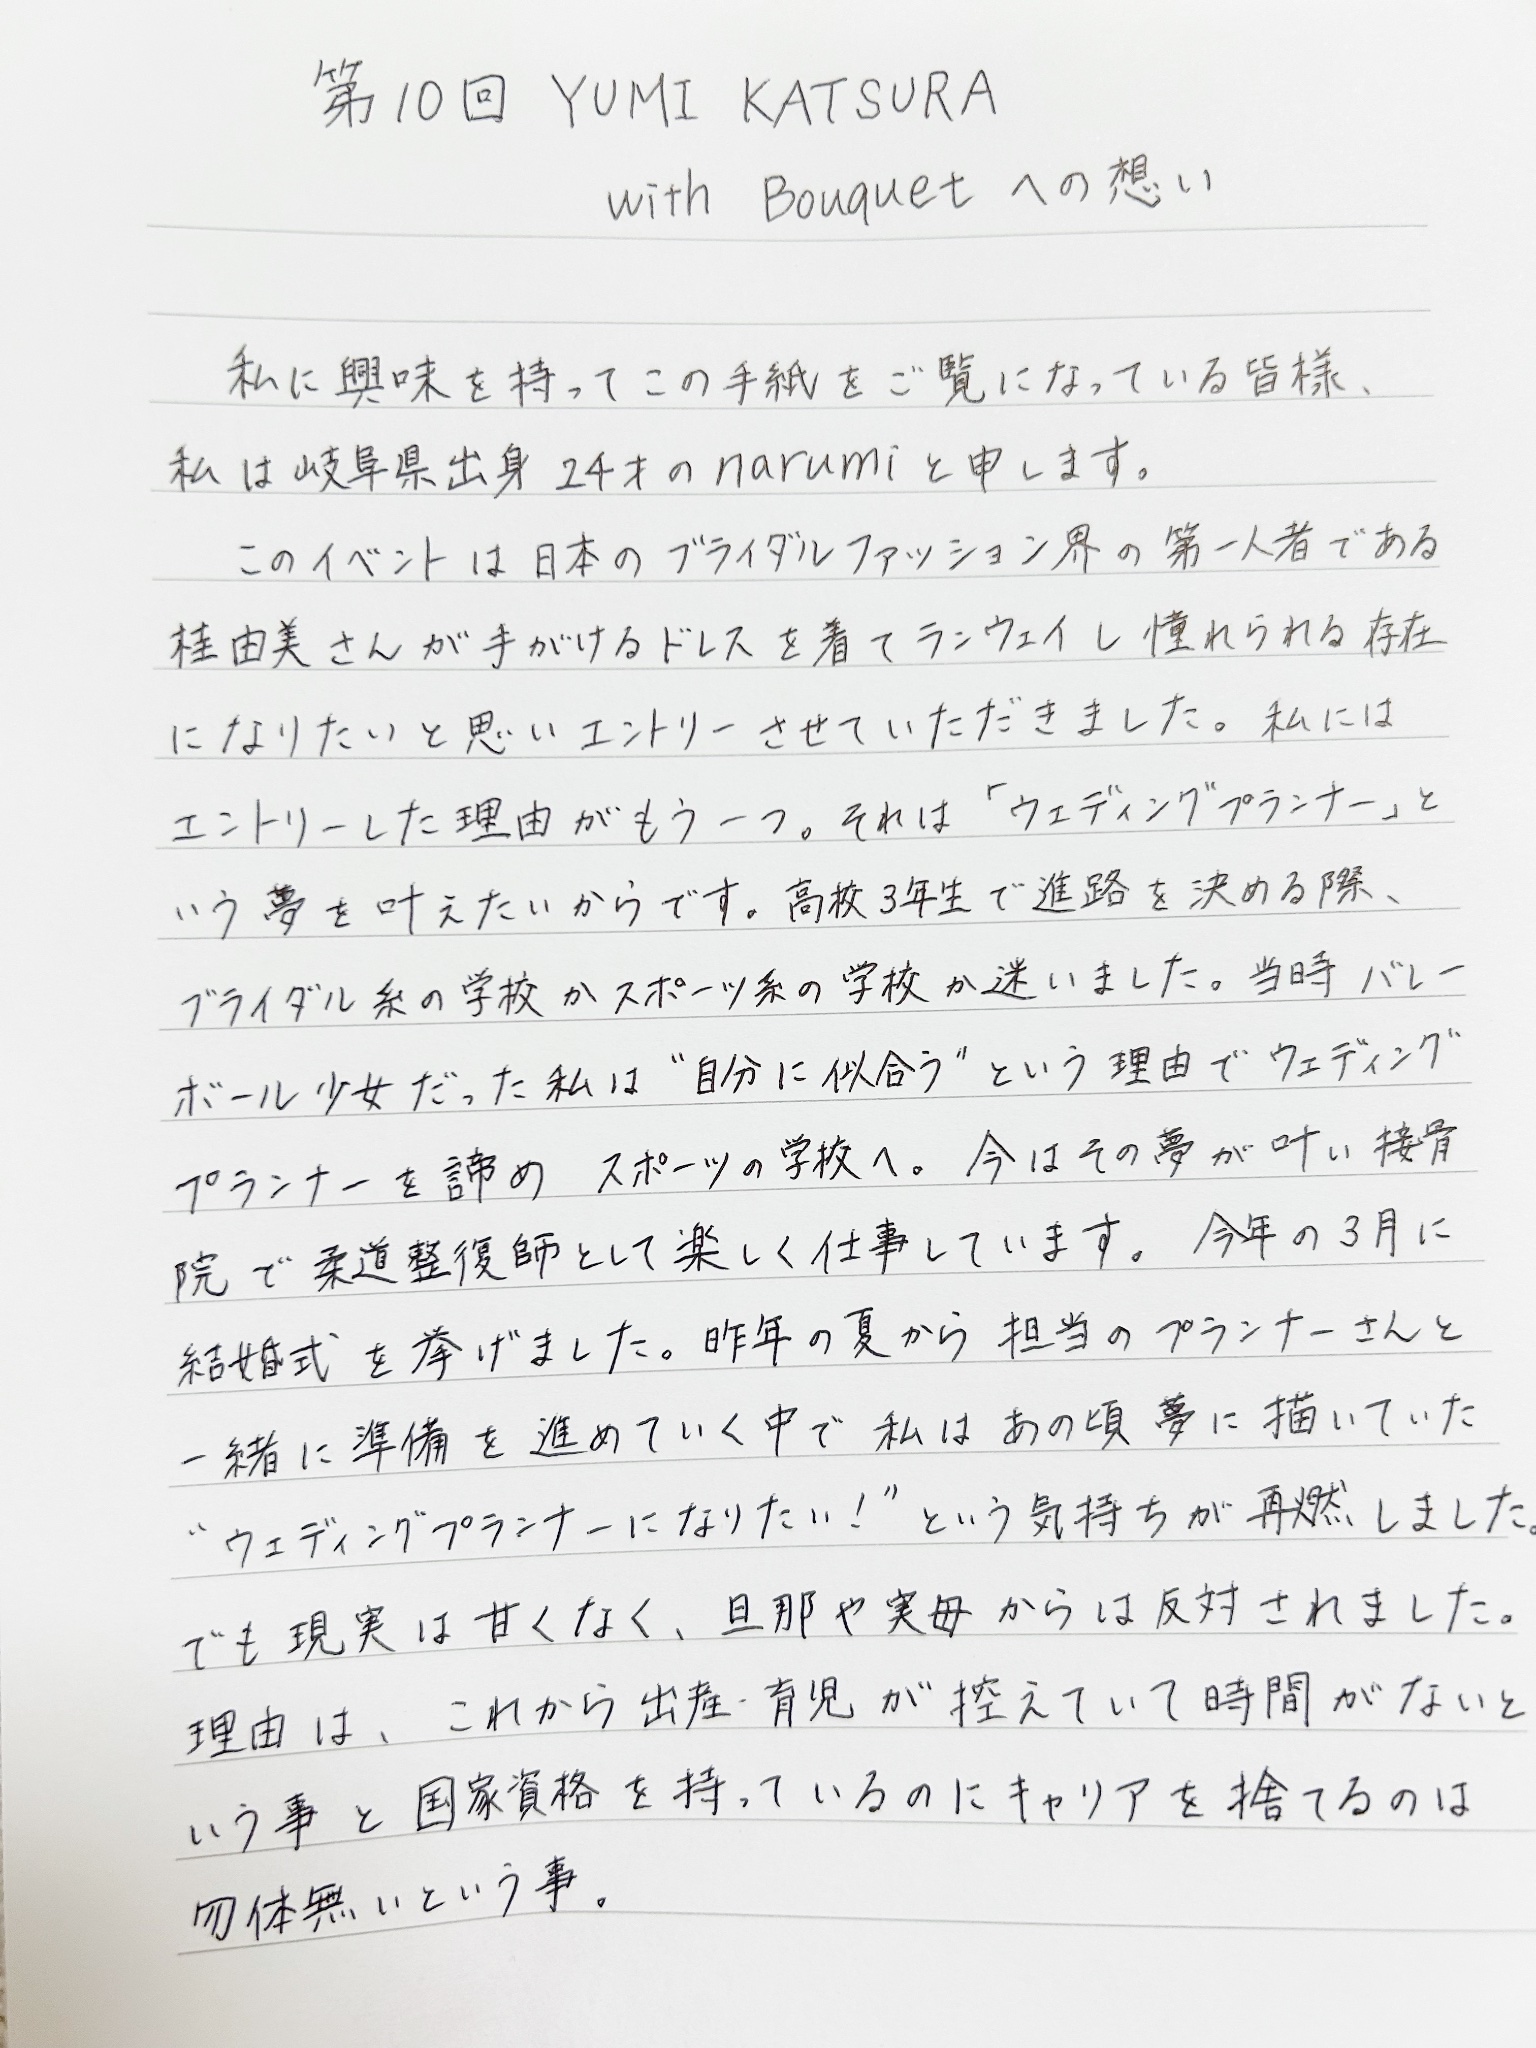 第10回 YUMI KATSURA
with Bouquet への想い
私に興味を持ってこの手紙をご覧になっている皆様、
私は岐阜県出身24才のnarumiと申します。
このイベントは日本のブライダルファッション界の第一人者である
桂由美さんが手がけるドレスを着てランウェイし憧れられる存在
になりたいと思いエントリーさせていただきました。私には
エントリーした理由がもう一つ。それは「ウェディングプランナー」と
いう夢を叶えたいからです。高校3年生で進路を決める際、
ブライダル系の学校かスポーツ系の学校か迷いました。当時バレー
ボール少女だった私は"自分に似合う"という理由でウェディング
プランナーを諦め スポーツの学校へ。今はその夢が叶い接骨
院で柔道整復師として楽しく仕事しています。今年の3月に
結婚式を挙げました。昨年の夏から担当のプランナーさんと
一緒に準備を進めていく中で私はあの頃夢に描いていた
"ウェディングプランナーになりたい!"という気持ちが再燃しました。
でも現実は甘くなく、旦那や実母からは反対されました。
理由は、これから出産・育児が控えていて時間がないと
いう事と国家資格を持っているのにキャリアを捨てるのは
勿体無いという事。